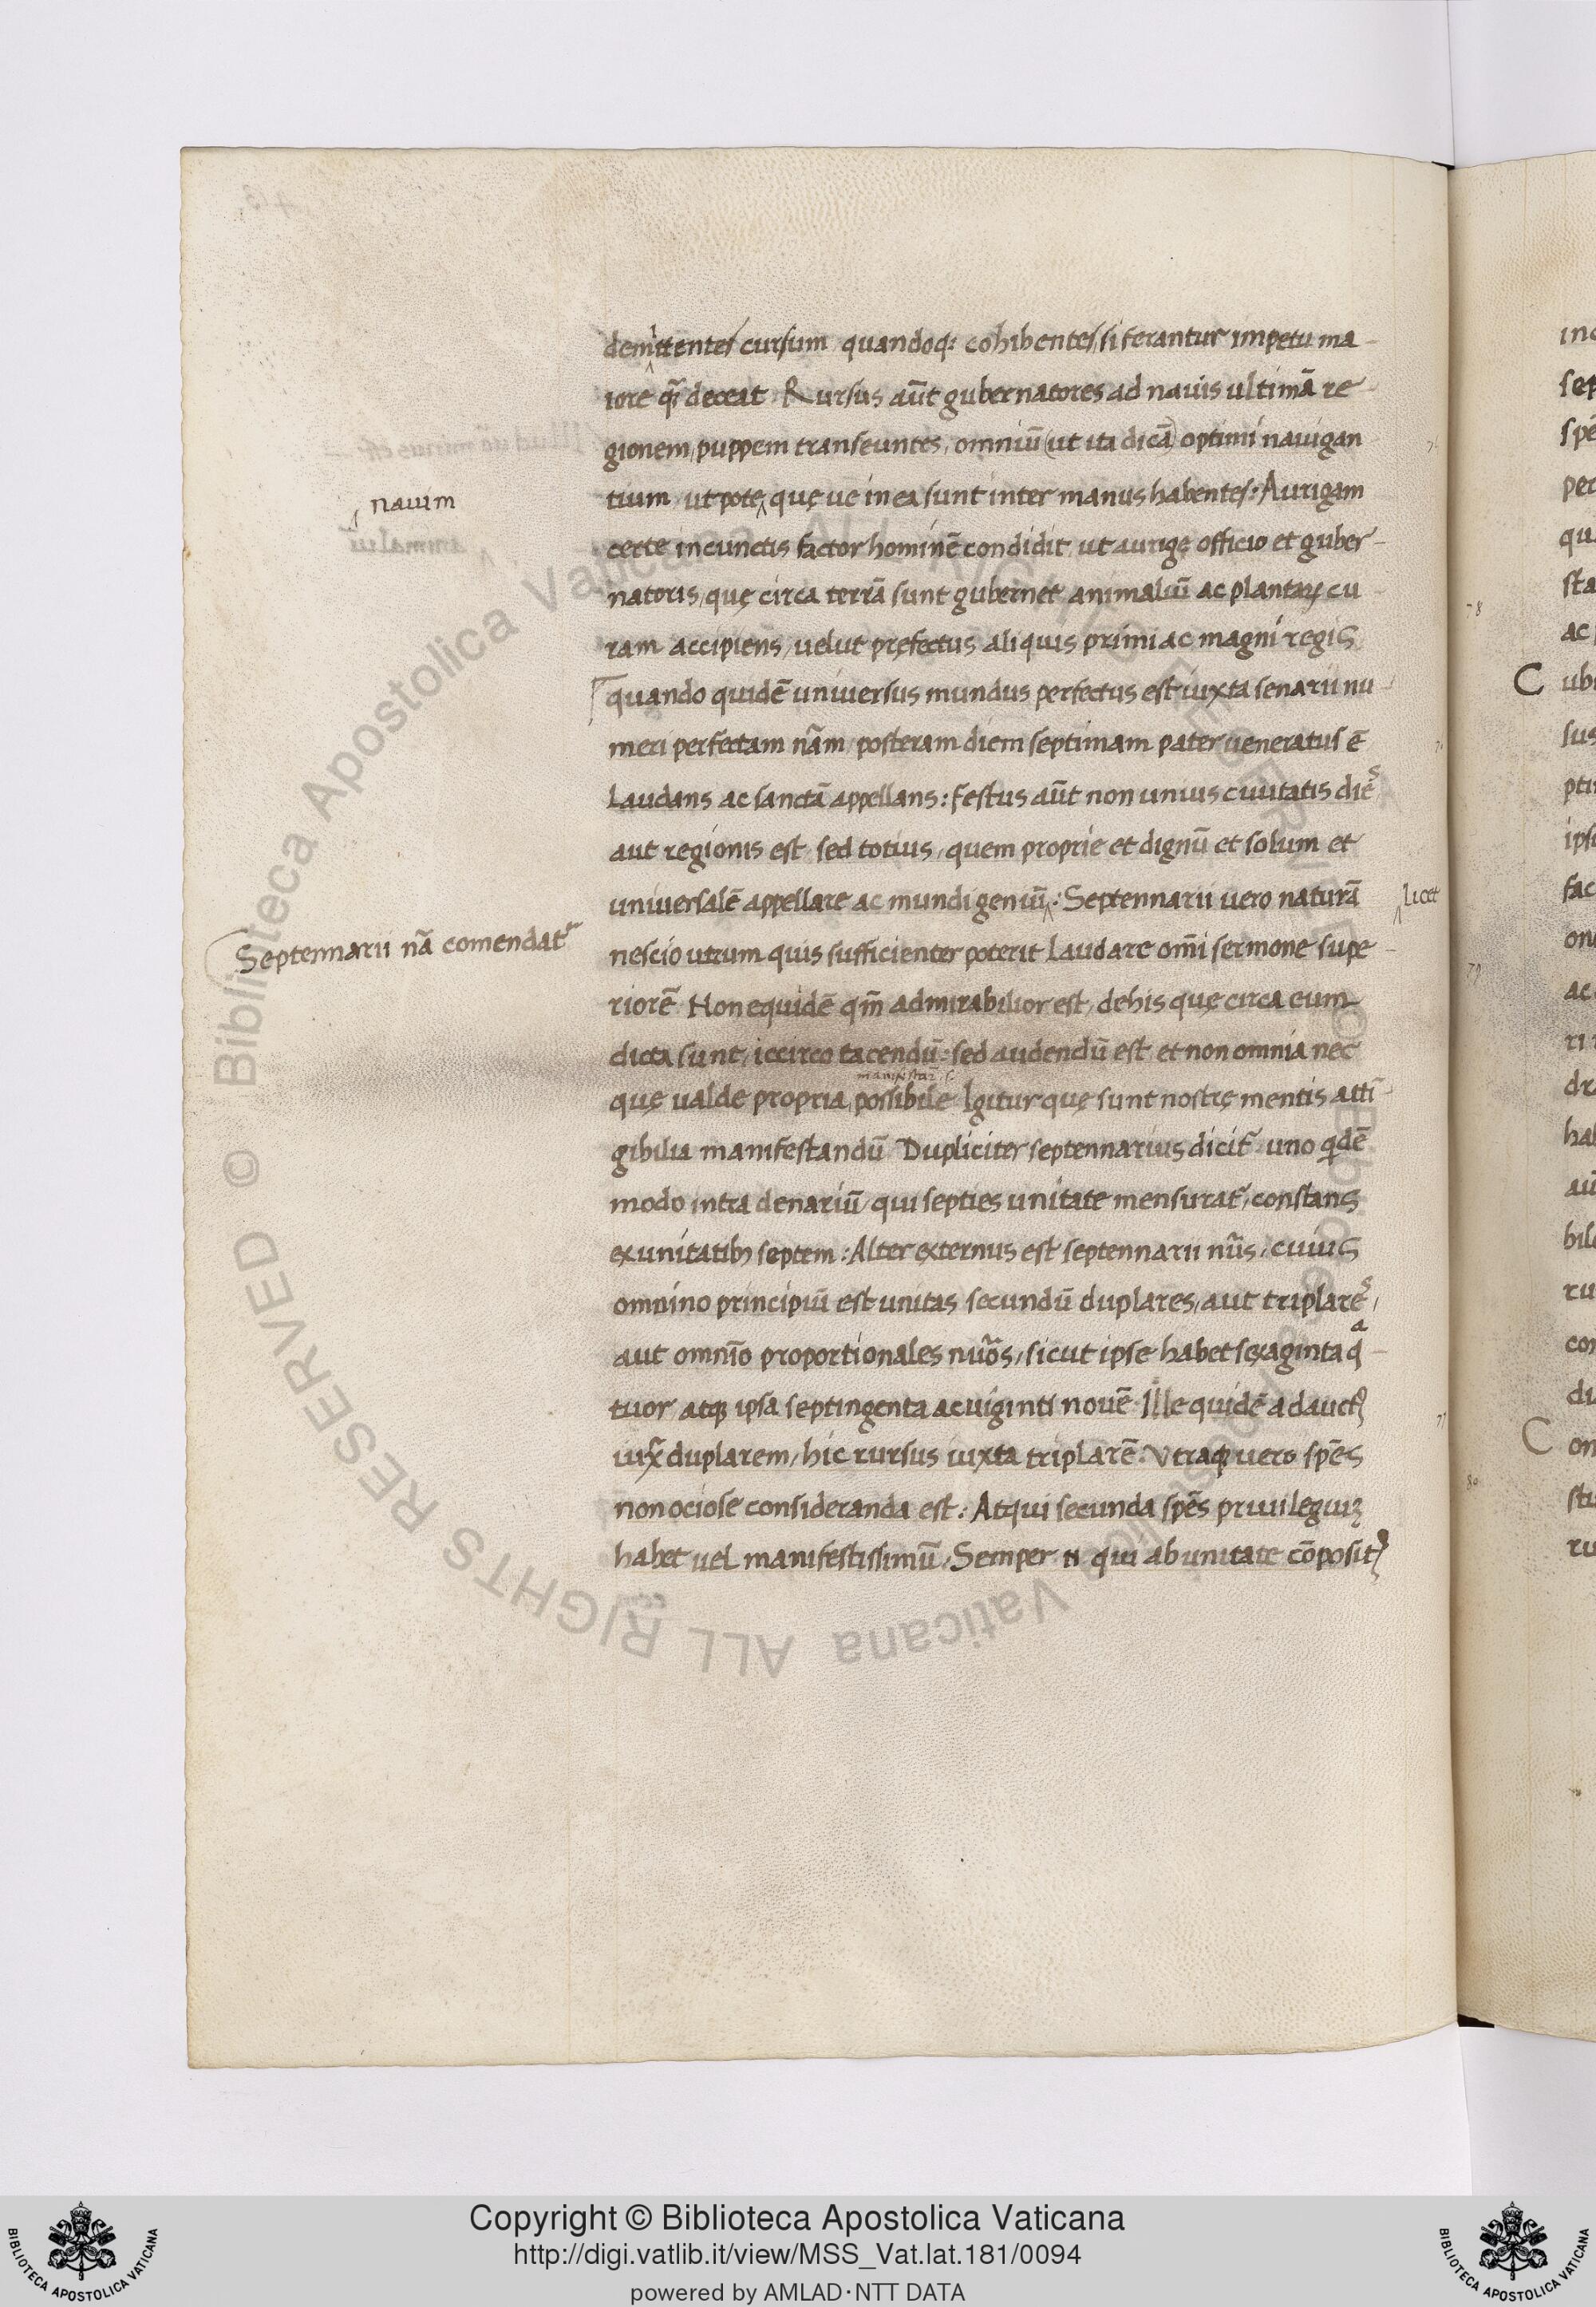 demittentes cursum quandoq; cohibentes, si ferantur impetu ma-
iore q̃ deceat Rursus aũt gubernatores ad nauis ultimã re-
gionem, puppem transeuntes, omniũ (ut ita dicã) optimi nauigan
nauim
tium ut pote, quę ue in ea sunt inter manus habentes: Aurigam
certe in cunctis factor hominẽ condidit ut aurigę officio et guber-
natoris, quę circa terrã sunt gubernet animaliũ ac plantaꝝ cu
ram accipiens, uelut pręfectus aliquis primi ac magni regis
quando quidẽ uniuersus mundus perfectus est iuxta senarii nu-
meri perfectam nãm, posteram diem septimam pater ueneratus ẽ
Laudans ac sanctã appellans: Festus aũt non unius ciuitatis dies
aut regionis est sed totius, quem proprie et dignũ et solum et
uniuersalẽ appellare ac mundi geniũ: Septennarii uero naturã
Licet
Septennarii nã comendat᷑
nescio utrum quis sufficienter poterit Laudare om̃i sermone supe-
riorẽ Non equidẽ qm̃ admirabilior est, de his quę circa eum
dicta sunt, iccirco tacendũ: sed audendũ est et non omnia nec
quę ualde propria, possibile Igitur quę sunt nostrę mentis atti-
gibilia manifestandũ Dupliciter septennarius dicit᷑ uno qdẽ
modo intra denariũ, qui septies unitate mensurat᷑, constans
ex unitatibꝫ septem: Alter externus est septennarii nũs, cuius
omnino principiũ est unitas secundũ duplares, aut triplares,
aut omnĩo proportionales nũos, sicut ipse habet sexaginta qa-
tuor, atqꝫ ipsa septingenta ac uiginti nouẽ Ille quidẽ adauctꝰ
iux̃ duplarem, hic rursus iuxta triplarẽ: Vtraqꝫ uero spẽs
non ociose consideranda est: Atqui secunda spẽs priuilegiuꝫ
habet uel manifestissimũ, Semper n̄ qui ab unitate cõpositꝰ